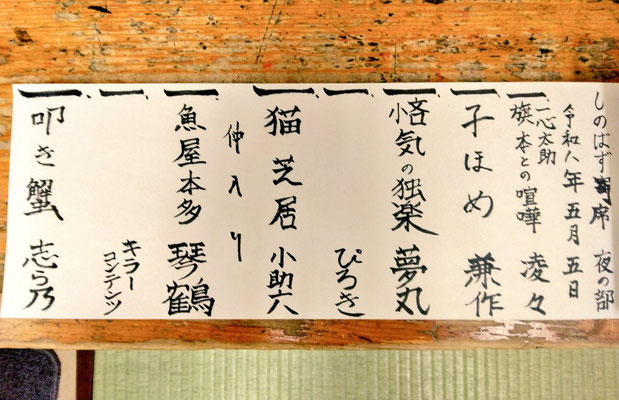 しのばず寄席 夜の部
令和八年五月五日
一、一心太助
旗本との喧嘩 凌々
一、子ほめ 兼作
一、悋気の独楽 夢丸
一、 ぴろき
一、猫芝居 小助六
仲入り
一、魚屋本多 琴鶴
一、 キラー
コンテンツ
一、叩き蟹 志ら乃